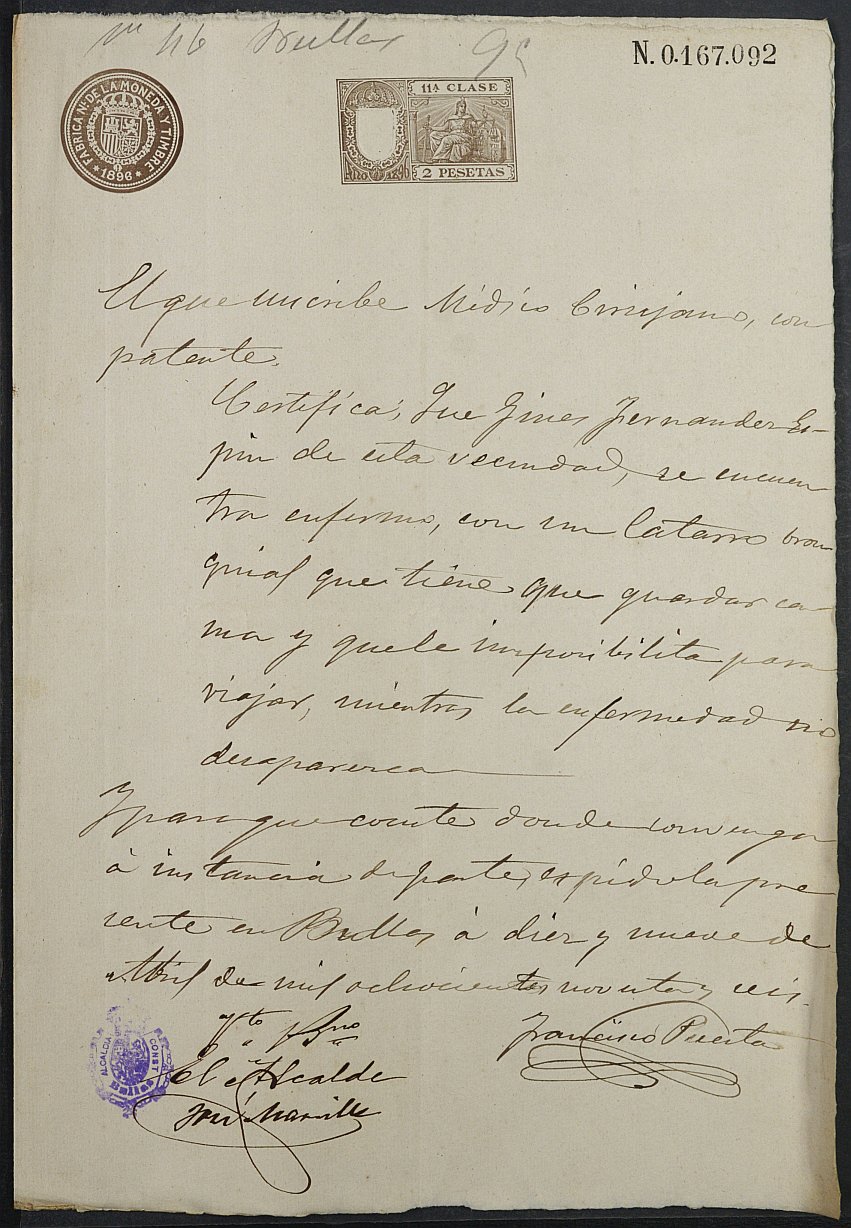 nº 46 Bullas 96
N. 0.167.092
FABRICA Nᴸ DE LA MONEDA Y TIMBRE
* 1896 *
11ª CLASE
AÑO 1896
2 PESETAS
El que suscribe Médico Cirujano, con
patente.
Certifica; Que Gines Fernandez Es-
pin de esta vecindad, se encuen
tra enfermo, con un catarro bron
quial que tiene que guardar ca
ma y que le imposibilita para
viajar, mientras la enfermedad no
desaparezca
Y para que conste donde convenga
á instancia de parte, espido la pre
sente en Bullas á diez y nueve de
Abril de mil ochocientos noventa y seis.
Vto Bno
Francisco Puerta
El Alcalde
José Marsilla
ALCALDIA CONST
Bullas